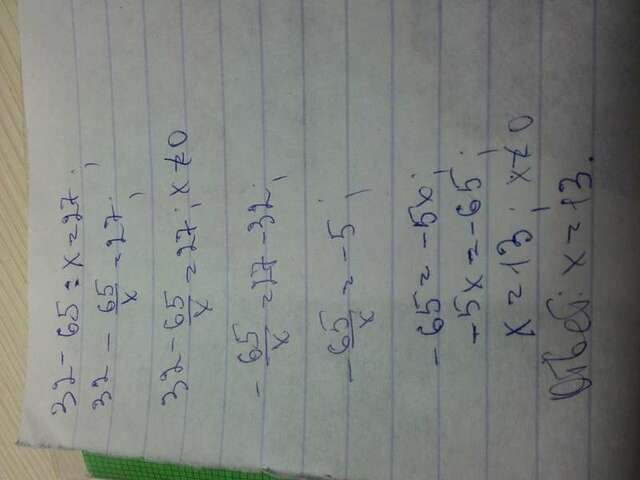 32 - 65 : x = 27 ;
32 - 65/x = 27 ;
32 - 65/x = 27 ; x ≠ 0
- 65/x = 27 - 32 ;
- 65/x = -5 ;
- 65 = -5x ;
-5x = -65 ;
x = 13 ; x ≠ 0
Ответ: x = 13.